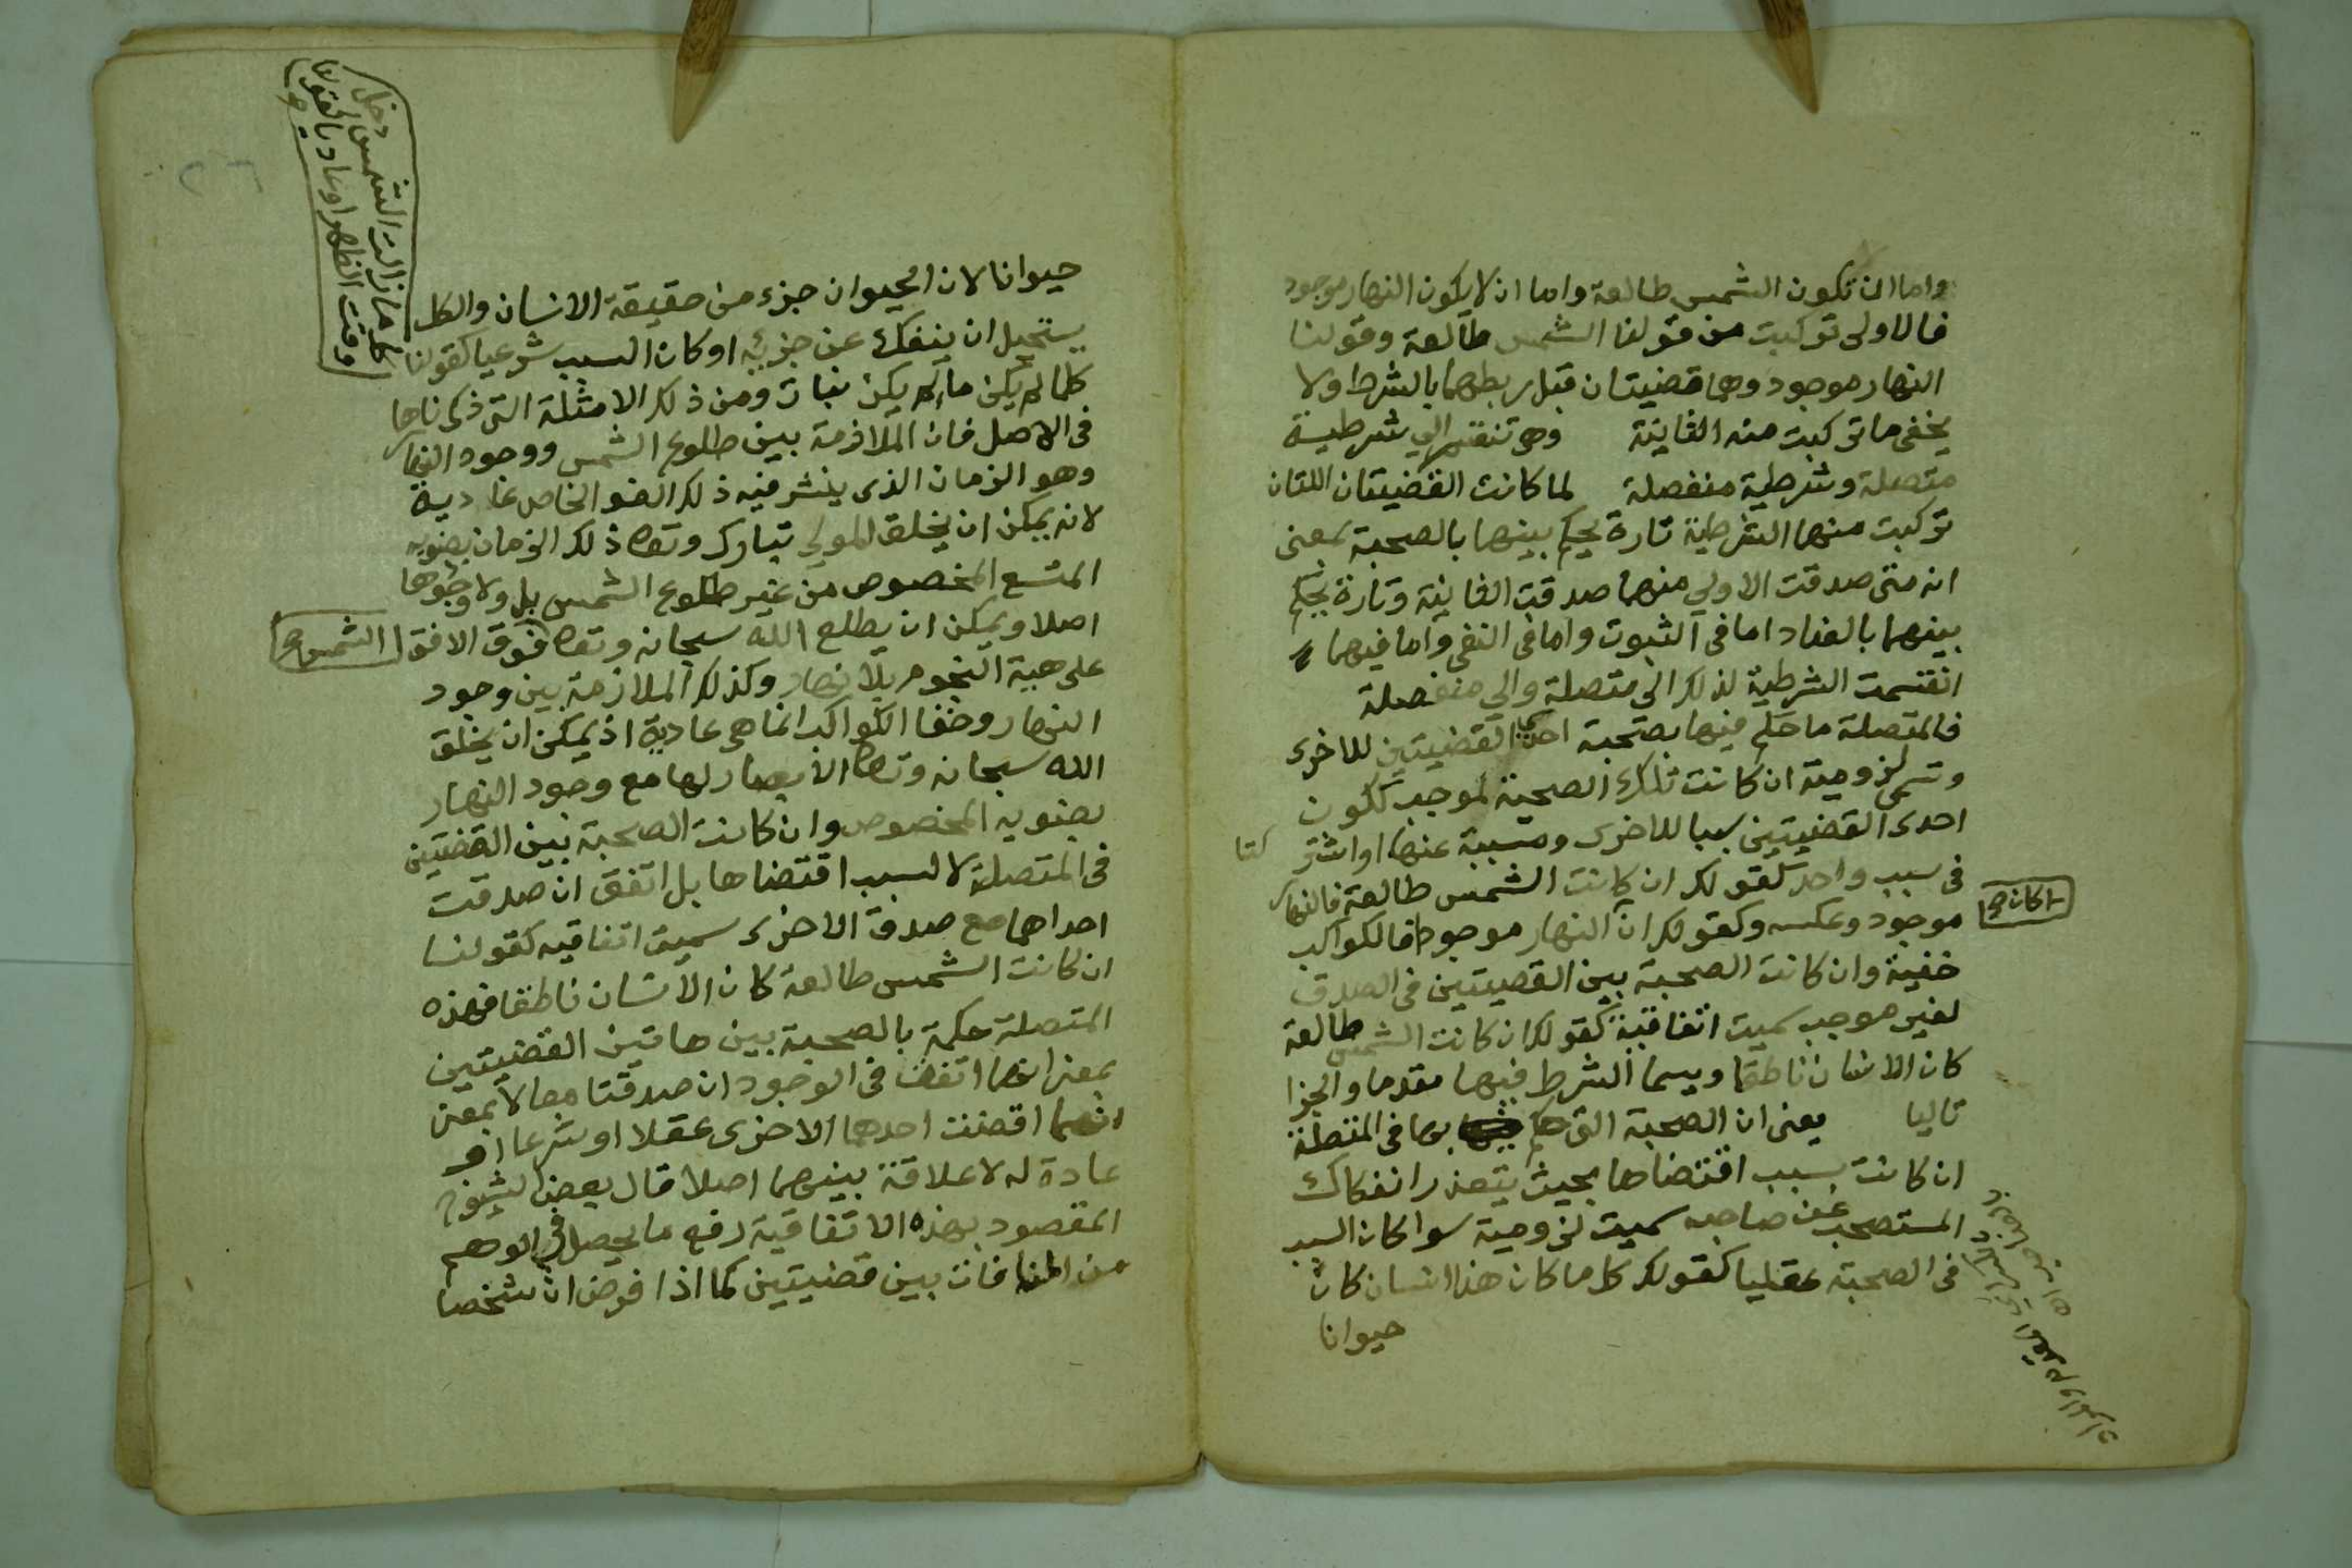 واما ان تكون الشمس طالعة واما ان لا يكون النهار موجود
فالاولى تركبت من قولنا الشمس طالعة وقولنا
النهار موجود وهما قضيتان قبل ربطهما بالشرط ولا
يخفى ما تركبت منه الثانية وهى تنقسم الي شرطية
متصلة وشرطية منفصلة لما كانت القضيتان اللتان
تركبت منهما الشرطية تارة يحكم بينهما بالصحبة بمعنى
انه متى صدقت الاولي منهما صدقت الثانية وتارة يحكم
بينهما بالعناد اما فى الثبوت واما فى النفى واما فيهما
انقسمت الشرطية لذلك الى متصلة والى منفصلة
فالمتصلة ما حكم فيها بصحبة احدى القضيتين للاخرى
وتسمى لزومية ان كانت تلك الصحبة لموجب ككون
احدى القضيتين سببا للاخرى ومسببة عنها او اشتر كتا
فى سبب واحد كقولك ان كانت الشمس طالعة فالنهار
موجود وعكسه وكقولك ان النهار موجودا فالكواكب
كان صح
خفية وان كانت الصحبة بين القضيتين فى الصدق
لغير موجب سميت اتفاقية كقولك ان كانت الشمس طالعة
كان الانسان ناطقا ويسما الشرط فيها مقدما والجزا
تاليا يعنى ان الصحبة التى حكم بها فى المتصلة
ان كانت بسبب اقتضاها بحيث يتعذر انفكاك
المستصحب عن صاحبه سميت لزومية سوا كان السبب
فى الصحبة عقليا كقولك كل ما كان هذا انسان كان
حيوانا
حيوانا لان الحيوان جزء من حقيقة الانسان والكل
يستحيل ان ينفك عن جزئه او كان السبب شرعيا كقولنا
كلما زالت الشمس دخل
وقت الظهر او عاديا كقولنا
صح
كلما لم يكن ماء لم يكن نبات ومن ذلك الامثلة التى ذكرناها
فى الاصل فان الملازمة بين طلوع الشمس ووجود النهار
وهو الزمان الذى ينشر فيه ذلك الضو الخاص عادية
لانه يمكن ان يخلق المولي تبارك وتعا ذلك الزمان بضويه
المتسع المخصوص من غير طلوع الشمس بل ولا وجودها
اصلا ويمكن ان يطلع الله سبحانه وتعا فوق الافق الشمس صح
على هية النجوم بلا نهار وكذلك الملازمة بين وجود
النهار وخفا الكواكب انما هى عادية اذ يمكن ان يخلق
الله سبحانه وتعا الابصار لها مع وجود النهار
بضويه المخصوص وان كانت الصحبة بين القضيتين
فى المتصلة لا لسبب اقتضاها بل اتفق ان صدقت
احداهما مع صدق الاخرى سميت اتفاقيه كقولنا
ان كانت الشمس طالعة كان الانسان ناطقا فهذه
المتصلة حكمة بالصحبة بين هاتين القضيتين
بمعنى انهما اتفق فى الوجود ان صدقتا معا لا بمعنى
انهما اقتضت احدهما الاخرى عقلا او شرعا او
عادة له لا علاقة بينهما اصلا قال بعض الشيوخ
المقصود بهذه الاتفاقية رفع ما يحصل فى الوهم
من المنافات بين قضيتين كما اذا فرض ان شخصا